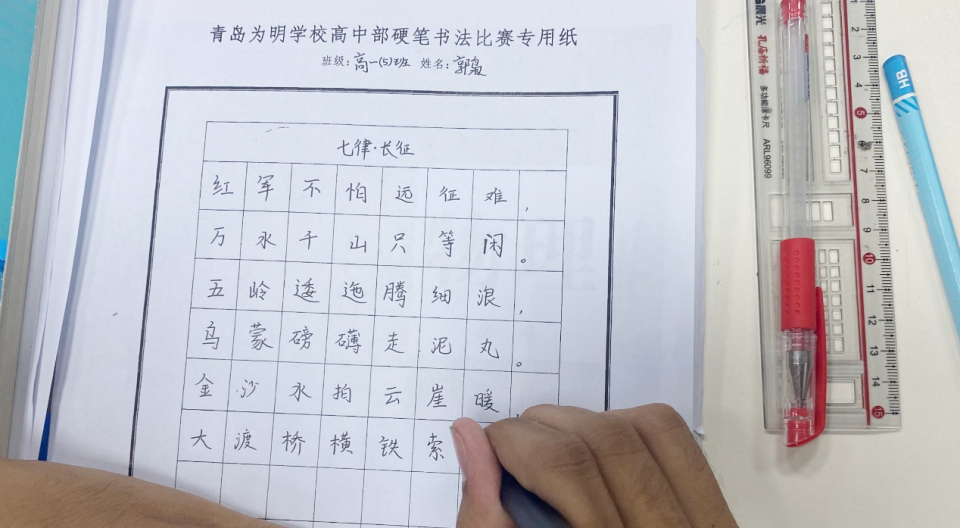 青岛为明学校高中部硬笔书法比赛专用纸
班级：高一(5)班 姓名：郭枭
七律·长征
红军不怕远征难，
万水千山只等闲。
五岭逶迤腾细浪，
乌蒙磅礴走泥丸。
金沙水拍云崖暖，
大渡桥横铁索
晨光 孔庙祈福 多功能滑卡尺 ARL96099
1 2 3 4 5 6 7 8 9 10 11 12 13 14 15
HB